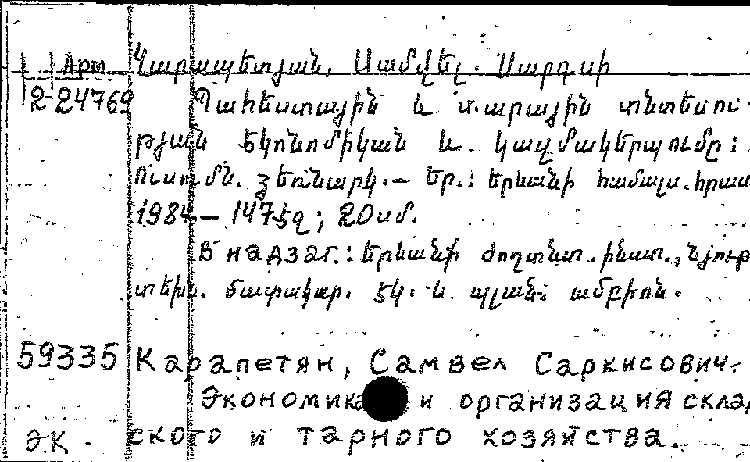 Арм Կարապետյան, Սամվել Սարգսի
2-24769 Պահեստային և տարային տնտեսու-
թյան էկոնոմիկան և կազմակերպումը:
Ուսումն. ձեռնարկ.— Եր.: Երևանի համալս. հրատ
1984— 147էջ; 20սմ.
В надзаг.: Երևանի ժողտնտ. ինստ., նյութ
տեխն. մատակար. էկ. և պլան. ամբիոն.
59335 Карапетян, Самвел Саркисович.
Экономика и организация скла
эк. ского и тарного хозяйства.